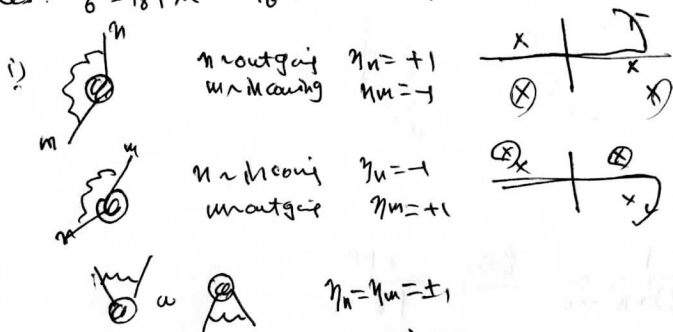 i)
n
n ~ outgoing η_n = +1
m ~ incoming η_m = -1
m
m
n ~ incoming η_n = -1
m ~ outgoing η_m = +1
n
η_n = η_m = ±1